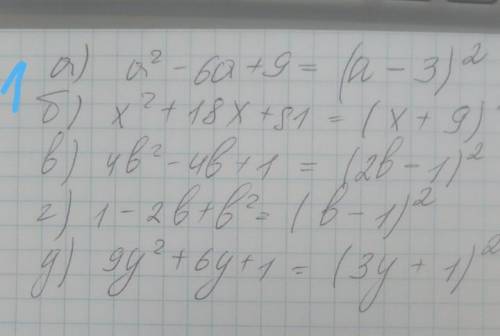 1
а) a² - 6a + 9 = (a - 3)²
б) x² + 18x + 81 = (x + 9)
в) 4b² - 4b + 1 = (2b - 1)²
г) 1 - 2b + b² = (b - 1)²
д) 9y² + 6y + 1 = (3y + 1)²